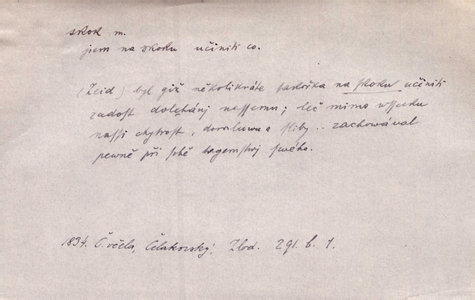 skok m.
jsem na skoku učiniti co.
(Žid) byl giž několikráte na skoku učiniti
žadost dotěránj nassemu; leč mimo wssecku
nassi chytrost, domluwu a sliby .. zachowával
pewně při sobě tagemstwj swého.
1834. Č. včela, Čelakovský. Zlod. 291. b. 1.